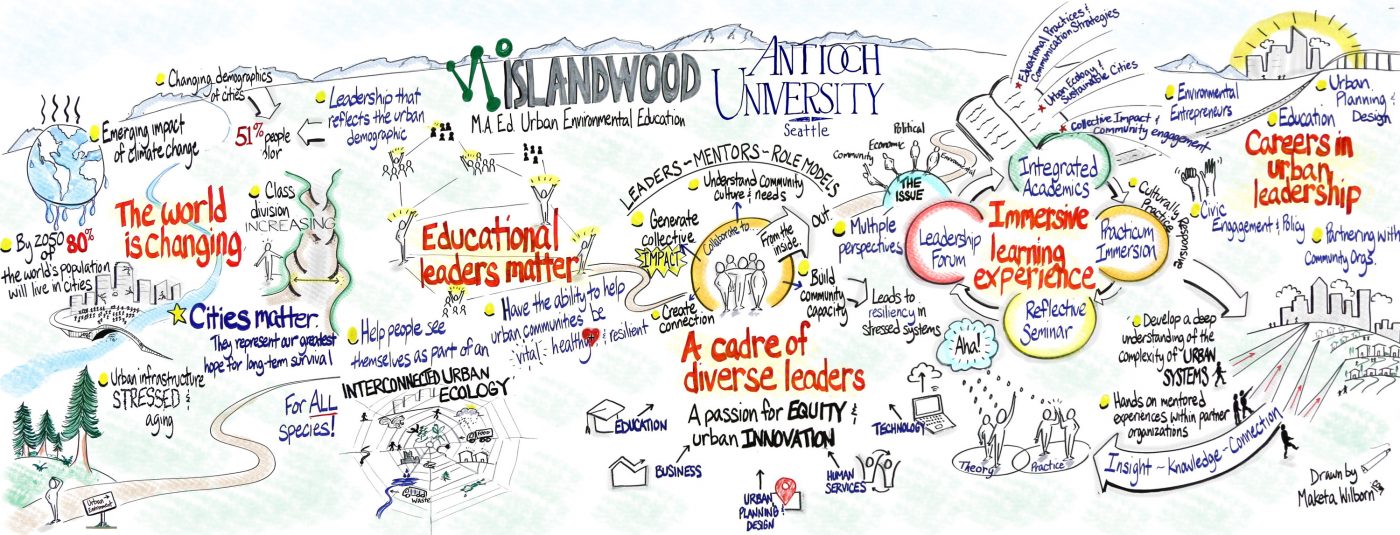 Changing demographics
of cities
Emerging impact
of climate change
51% people
Leadership that
reflects the urban
demographic
ISLANDWOOD
M.A. Ed. Urban Environmental Education
ANTIOCH
UNIVERSITY
Seattle
The world
is changing
Class
division
INCREASING
By 2050 80%
of
the world's population
will live in cities
Cities matter.
They represent our greatest
hope for long-term survival
Urban infrastructure
STRESSED &
aging
Urban
Environment
For ALL
species!
Educational
leaders matter
Help people see
themselves as part of an
INTERCONNECTED URBAN
ECOLOGY
FOOD
Waste
Have the ability to help
urban communities be
vital healthy & resilient
LEADERS - MENTORS - ROLE MODELS
Understand Community
culture & needs
Generate
collective
IMPACT
Collaborate to...
From the
inside.
OUT.
Create
connection
Build
community
capacity
Leads to
resiliency in
stressed systems
A cadre of
diverse leaders
A passion for EQUITY &
urban INNOVATION
EDUCATION
BUSINESS
URBAN
PLANNING &
DESIGN
HUMAN
SERVICES
TECHNOLOGY
Community
Economic
Political
Environmental
THE
ISSUE
Multiple
perspectives
Educational Practices &
Communication Strategies
Urban Ecology &
Sustainable Cities
Collective Impact &
Community engagement
Integrated
Academics
Leadership
Forum
Immersive
learning
experience
Practicum
Immersion
Culturally Responsive
Practice
Reflective
Seminar
Aha!
Theory
Practice
Develop a deep
understanding of the
complexity of URBAN
SYSTEMS
Hands on mentored
experiences within partner
organizations
Insight - Knowledge - Connection
Environmental
Entrepreneurs
Education
Urban
Planning &
Design
Careers in
urban
leadership
Civic
Engagement & Policy
Partnering with
Community Orgs.
Drawn by
Maketa Wilborn